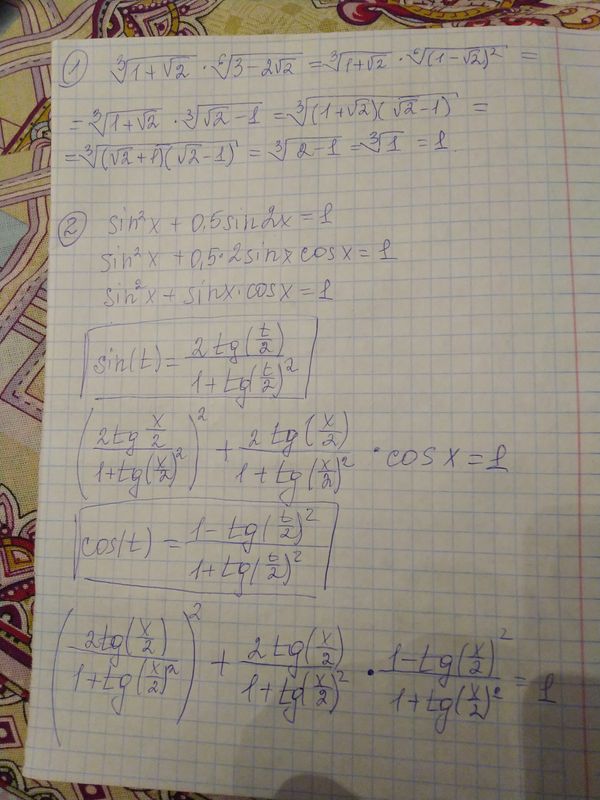 ① ∛(1+√2) · ⁶√(3−2√2) = ∛(1+√2) · ⁶√((1−√2)²) =
= ∛(1+√2) · ∛(√2−1) = ∛((1+√2)(√2−1)) =
= ∛((√2+1)(√2−1)) = ∛(2−1) = ∛1 = 1.
② sin²x + 0,5sin2x = 1
sin²x + 0,5·2sinx cosx = 1
sin²x + sinx·cosx = 1
sin(t) = (2tg(t/2))/(1+tg(t/2)²)
((2tg x/2)/(1+tg(x/2)²))² + (2tg(x/2))/(1+tg(x/2)²) · cosx = 1
cos(t) = (1−tg(t/2)²)/(1+tg(t/2)²)
((2tg(x/2))/(1+tg(x/2)²))² + (2tg(x/2))/(1+tg(x/2)²) · (1−tg(x/2)²)/(1+tg(x/2)²) = 1